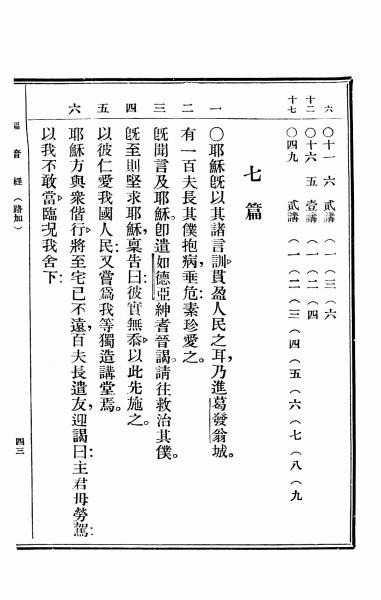 六 〇十一 六 貳講 （一）（三）（六
十二 〇十六 五 壹講 （一）（二）（四
十七 〇四九 貳講 （一）（二）（三）（四）（五）（六）（七）（八）（九
七篇
一 〇耶穌旣以其諸言訓貫盈人民之耳、乃進葛發翁城。
二 有一百夫長其僕抱病、垂危、素珍愛之。
三 旣聞言及耶穌。卽遣如德亞紳者晉謁、請往救治其僕。
四 旣至則堅求耶穌、稟告曰、彼實無忝、以此先施之。
五 以彼仁愛我國人民、又嘗爲我等獨造講堂焉。
六 耶穌方與衆偕行、將至宅已不遠、百夫長遣友、迎謁曰、主君毋勞駕、
以我不敢當、臨況我舍下、
福音經（路加） 四三